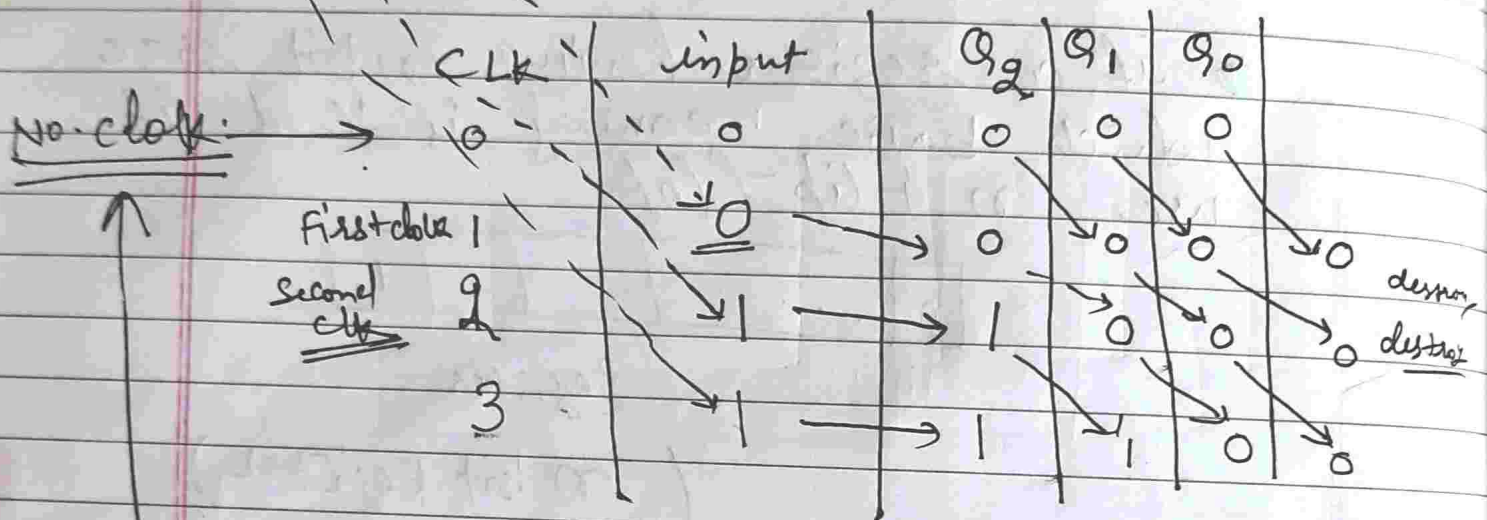 CLK input Q2 Q1 Q0
No. clock. → 0 0 0 0 0
First clock 1 0 0 0 0 0
Second clk 2 1 1 0 0 0 destroy
3 1 1 1 0 0